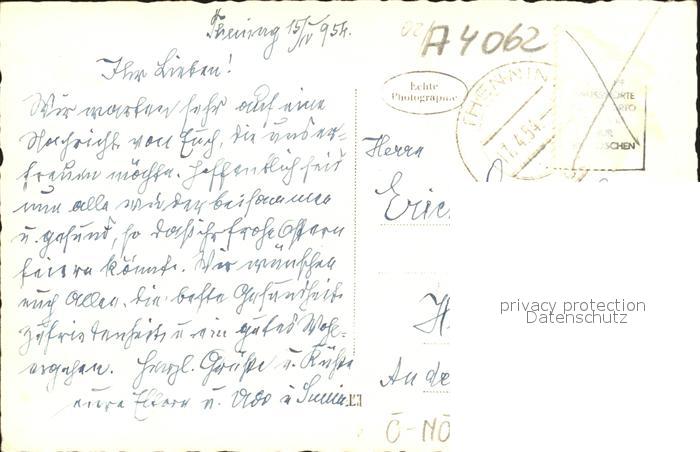 15/IV 954.
Ihr Lieben!
Wir warten sehr auf eine
Nachricht von Euch, die uns er-
freuen möchte. Hoffentlich seid
nun alle wieder beisammen
u. gesund, so daß ihr frohe Ostern
feiern könnt. Wir wünschen
euch Allen, die beste Gesundheit
Zufriedenheit u. ein gutes Wohl-
ergehen. Herzl. Grüße u. Küße
eure Eltern u.
02
A4062
Echte
Photographie
4.54
Herrn
privacy protection
Datenschutz
An de
Ö-NÖ